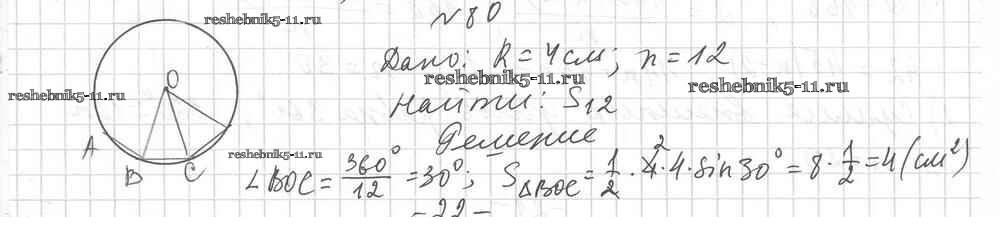 № 80
reshebnik5-11.ru
Дано: R = 4 см; n = 12
reshebnik5-11.ru
reshebnik5-11.ru
reshebnik5-11.ru
Найти: S₁₂
Решение
O
A
B
C
reshebnik5-11.ru
∠BOC = 360°/12 = 30°; S△BOC = 1/2 · 4̸² · 4 · sin 30° = 8 · 1/2 = 4 (см²)
- 22 -